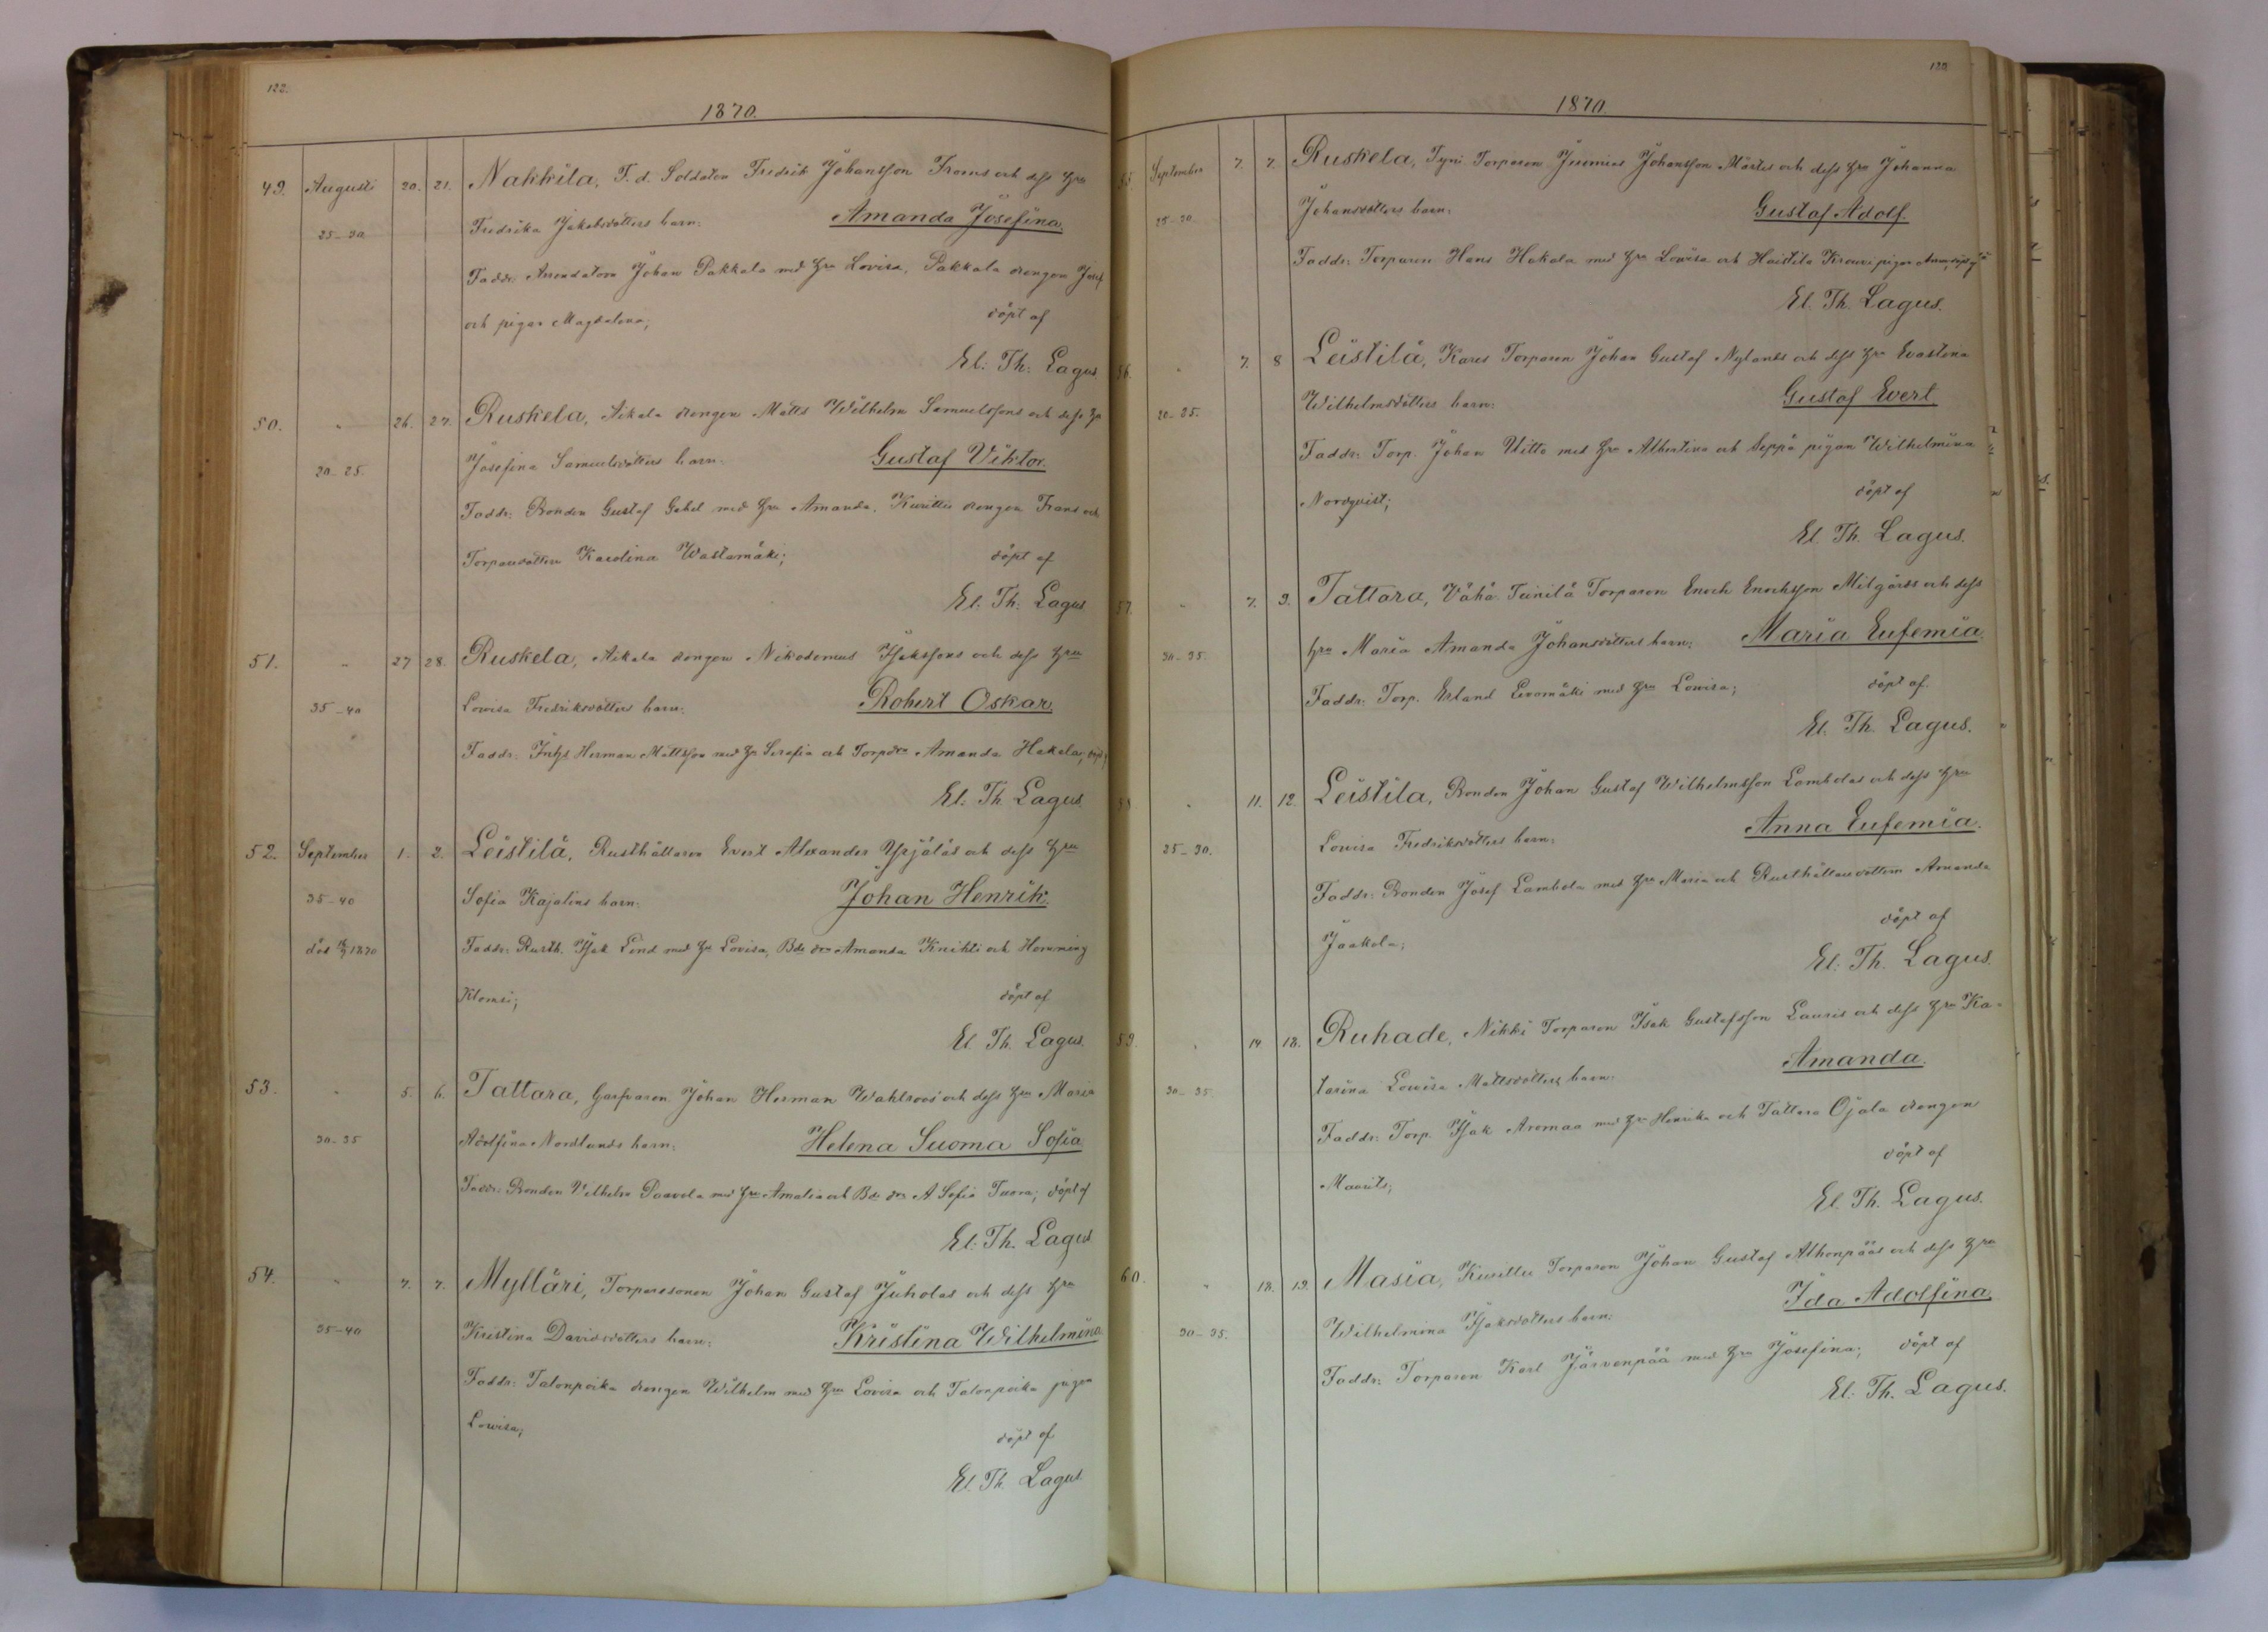 122.
1870.
49. Augusti 20. 21. Nakkila, F. d. Soldaten Fredrik Johansson Froms och dess hu
25-30 Fredrika Jakobsdotters barn: Amanda Josefina.
Faddr: Arrendatorn Johan Pakkala med hu Lovisa, Pakkala drengen Josef
och pigan Magdalena; döpt af
El: Th: Lagus
50. " 26. 27. Ruskela, Aikala drengen Matts Wilhelm Samuelssons och dess hu
20-25. Josefina Samuelsdotters barn: Gustaf Viktor.
Faddr: Bonden Gustaf Gabel med hu Amanda, Kurittu drengen Frans och
Torparedottern Karolina Wastamäki; döpt af
El: Th: Lagus
51. " 27 28. Ruskela, Aikala drengen Nikodemus Isakssons och dess hu
35-40 Lovisa Fredriksdotters barn: Robert Oskar.
Faddr: Inhs Herman Mattsson med hu Serafia och Torpdrn Amanda Hakala; döpt af
El: Th. Lagus
52. September 1. 2. Leistilä, Rusthållaren Evert Alexander Yrjäläs och dess hu
35-40 Sofia Kajalins barn: Johan Henrik.
död 1870 Faddr: Rusth. Isak Lind med hu Lovisa, Bde drn Amanda Knihti och Hemming
Klemsi; döpt af
El. Th. Lagus.
53. " 5. 6. Tattara, Garfvaren Johan Herman Wahlroos och dess hu Maria
30-35 Adolfina Nordlunds barn: Helena Suoma Sofia
Faddr: Bonden Vilhelm Paavola med hu Amalia och Bde drn A Sofia Tuora; döpt af
El. Th. Lagus
54. " 7. 7. Mylläri, Torparesonen Johan Gustaf Juholas och dess hu
35-40 Kristina Davidsdotters barn: Kristina Wilhelmina
Faddr: Talonpoika drengen Wilhelm med hu Lovisa och Talonpoika pigan
Lovisa; döpt af
El. Th. Lagus
1870.
55. September 7. 7. Ruskela, Tyni Torparen Jeremias Johansson Märtes och dess hu Johanna
25-30 Johansdotters barn: Gustaf Adolf.
Faddr: Torparen Hans Hakala med hu Lovisa och Haistila Krouvi pigan Anna; döpt af
El. Th. Lagus.
56. " 7. 8 Leistilä, Kares Torparen Johan Gustaf Nylands och dess hu Evastina
20-25. Wilhelmsdotters barn: Gustaf Evert.
Faddr: Torp. Johan Uitto med hu Albertina och Seppä pigan Wilhelmina
Nordqvist; döpt af
El. Th. Lagus.
57. " 7. 9. Tattara, Vähä Teinilä Torparen Enoch Enochsson Milgårds och dess
30-35. hu Maria Amanda Johansdotters barn: Maria Eufemia.
Faddr: Torp. Erland Levomäki med hu Lovisa; döpt af.
El. Th. Lagus.
58. " 11. 12. Leistilä, Bonden Johan Gustaf Wilhelmsson Lambolas och dess hu
25-30. Lovisa Fredriksdotters barn: Anna Eufemia.
Faddr: Bonden Josef Lambola med hu Maria och Rusthållaredottern Amanda
Jaakola; döpt af
El. Th. Lagus.
59. " 14. 18. Ruhade, Nikki Torparen Isak Gustafsson Lauris och dess hu Ka-
30-35 tarina Lovisa Mattsdotters barn: Amanda.
Faddr: Torp. Isak Aromaa med hu Henrika och Tattara Ojala drengen
Maurits; döpt af
El. Th. Lagus.
60. " 18. 19. Masia, Kurittu Torparen Johan Gustaf Alhonpääs och dess hu
30-35. Wilhelmina Isaksdotters barn: Ida Adolfina.
Faddr: Torparen Karl Järvenpää med hu Josefina; döpt af
El. Th. Lagus.